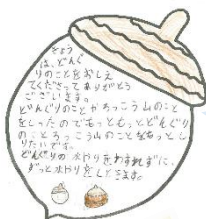 きょう
は、どんぐ
りのことをおしえ
てくださってありがとう
ございます。
どんぐりのことやろっこう山のこと
をしったのでもっともっとどんぐり
のことろっこう山のことをもっとし
りたいです。
どんぐりの水やりをわすれずに、
ずっと水やりをしときます。